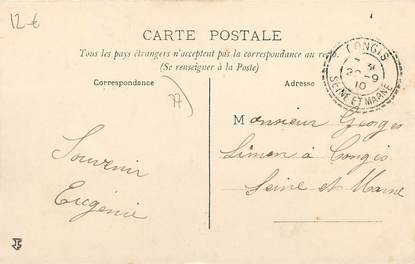 12-€
CARTE POSTALE
Tous les pays étrangers n'acceptent pas la correspondance au
(Se renseigner à la Poste)
Correspondance
Adresse
CONGIS
20-9
10
SEINE ET MARNE
77
Souvenir
Eugénie
Monsieur Georges
Simon à Congis
Seine et Marne